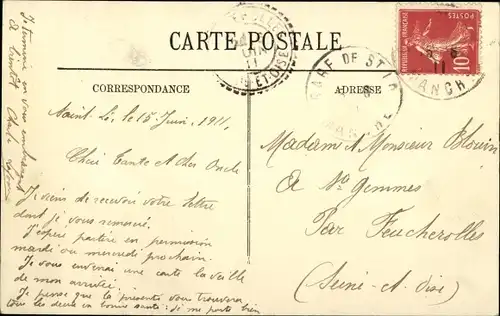 CARTE POSTALE
CORRESPONDANCE
ADRESSE
Saint Lô, le 15 Juin, 1911,
Chère Tante et Cher Oncle
Je viens de recevoir votre lettre
dont je vous remercie.
J'espère partire en permission
mardi ou mercredi prochain.
Je vous enverrai une carte la veille
de mon arrivée.
Je pense que la présente vous trouvera
tous les deux en bonne santé : je me porte bien
Je termine en vous embrassant
A bientôt
Madame et Monsieur Blouin
A Ste Gemmes
Par Feucherolles
(Seine-et-Oise)
GARE DE ST LO
MANCHE
ET-OISE
POSTES
10